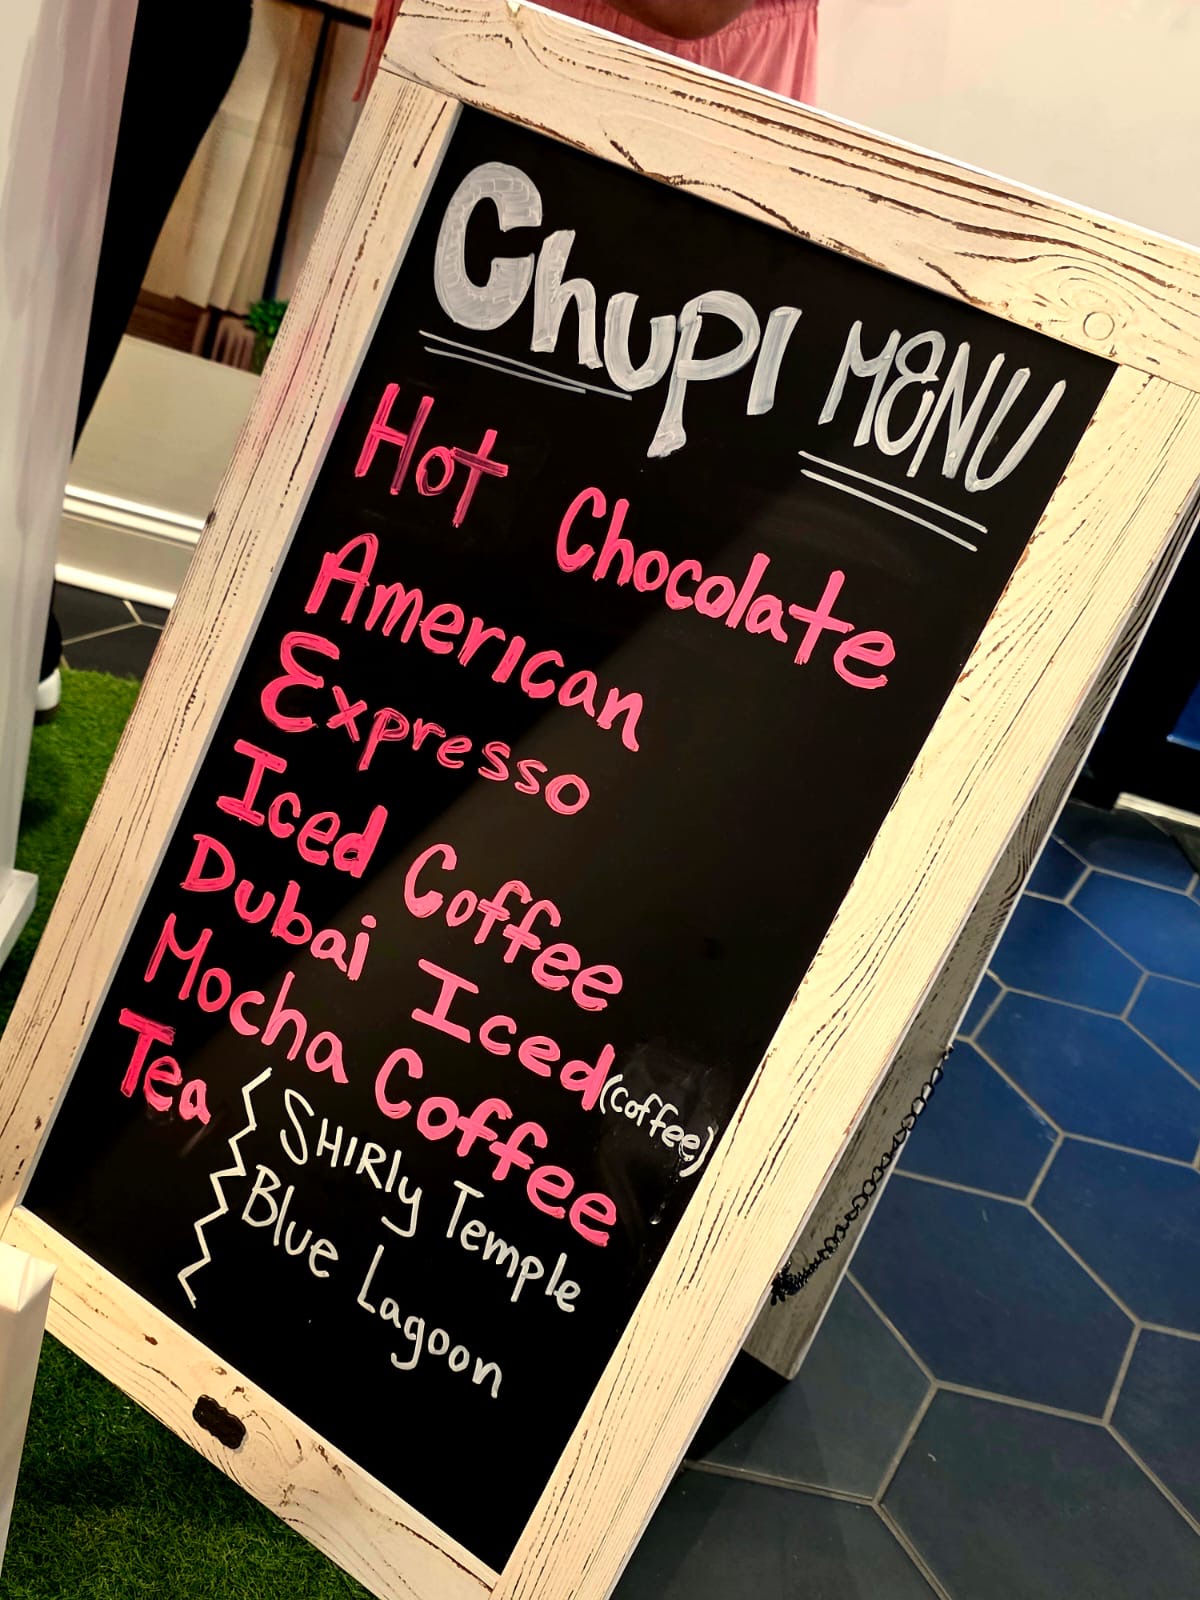 Chupi MENU
Hot Chocolate
American
Expresso
Iced Coffee
Dubai Iced (coffee)
Mocha Coffee
Tea
SHIRly Temple
Blue Lagoon